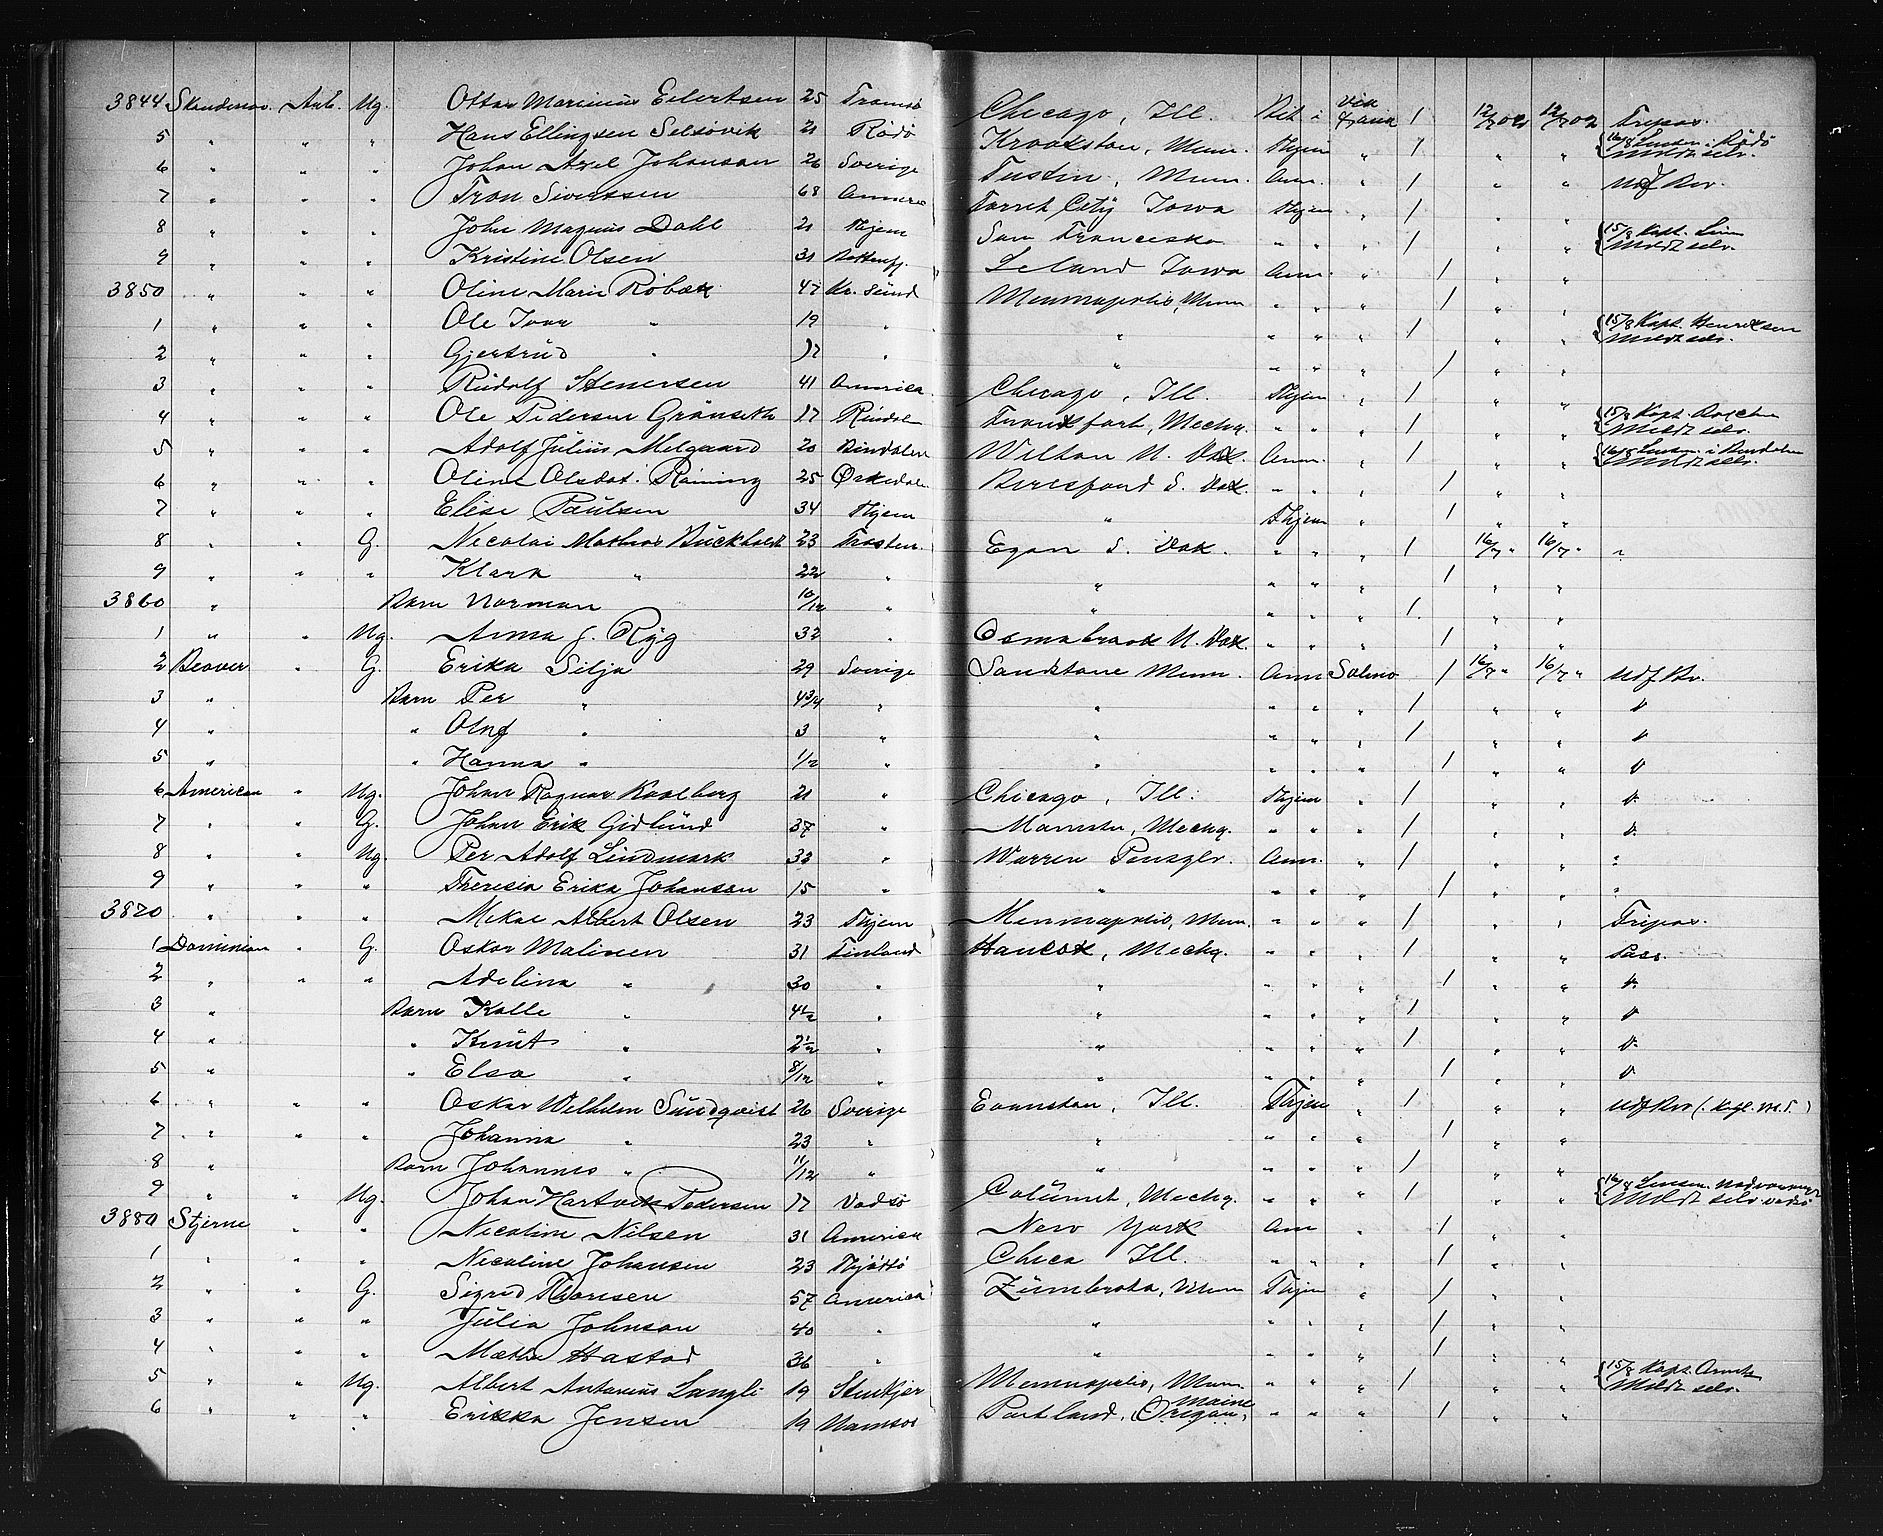 3844 Skandenav. Arb. Ug. Ottar Marinius Eilertsen 25 Tromsø Chicago, Ill. Bet i 1 12/7 02 12/7 02 Fripas.
5 " " " Hans Ellingsen Selsövik 21 Rödö Krookston, Minn. Thjem " 1 " " 16/8 Lensm. i Rödö Meldt selv.
6 " " " Johan Axel Johanson 26 Sverige Tustin, Minn. Am. " 1 " " Udf Bev.
7 " " " Tron Sivertsen 68 America Forret City Iowa Thjem " 1 " "
8 " " " John Magnus Dahl 21 Thjem San Francisko " " " 1 " " 15/8 Kapt. Meldt selv.
9 " " " Kristine Olsen 31 Leland Iowa Am. " 1 " "
3850 " " " Oline Marie Robæk 47 Kr. Sund Minniapolis, Minn " " " 1 " "
1 " " " Ole Ivar " 19 " " " " " 1 " " 15/8 Kapt. Henriksen Meldt selv.
2 " " " Gjertrud " 17 " " " " " 1 " "
3 " " " Rudolf Stenersen 41 America Chicago, Ill. Thjem " 1 " "
4 " " " Ole Pedersen Grönseth 17 Rindalen Frankfort, Mechg. " " " 1 " " 15/8 Kapt. Meldt selv.
5 " " " Adolf Julius Melgaard 20 Bindalen Wilton N. Dak. Am. " 1 " " 16/8 Lensm. i Bindalen Meldt selv.
6 " " " Oline Olsdat. Röning 25 Ørkedal Beresford S. Dak. " " " 1 " "
7 " " " Elise Paulsen 34 Thjem " Thjem " 1 " "
8 " " G. Necolai Mathias Buckholdt 23 Trosten. Egan S. Dak. " " " 1 16/7 " 16/7 " "
9 " " " Klara " 22 " " " " " 1 " "
3860 " Barn Norman 10/12 " " " " " 1 " "
1 " " Ug. Anna J. Ryg 32 " Osmabrook N. Dak. " " " 1 " "
2 Beaver " G. Erika Silja 29 Sverige Sandstone Minn. Am Salmo 1 16/7 " 16/7 " Udf Bv.
3 " Barn Per " 4 3/4 " " " " " 1 " "
4 " " Oluf " 3 " " " " " 1 " "
5 " " Hanna " 1/2 " " " " " 1 " "
6 American " Ug. Johan Ragnar Kaalberg 21 " Chicago, Ill. Thjem " 1 " "
7 " " G. Johan Erik Gidlund 37 " Mechg. " " " 1 " "
8 " " Ug. Per Adolf Lindmark 33 " Warren Pensylv. Am. " 1 " " "
9 " " " Theresia Erika Johanson 15 " " " " " 1 " " "
3870 " " " Mikal Albert Olsen 23 Thjem Minniapolis, Minn. " " " 1 " " Fripas.
1 Dominion " G. Oskar Malinen 31 Finland Hancok, Mechg. " " " 1 " " Pass.
2 " " " Adelina " 30 " " " " " 1 " "
3 " Barn Kalle " 4 1/2 " " " " " 1 " "
4 " " Knut " 2 1/2 " " " " " 1 " "
5 " " Elsa " 8/12 " " " " " 1 " "
6 " " " Oskar Wilhelm Sundqvist 26 Sverige Evanston, Ill. Thjem " 1 " " Udf Bev
7 " " " Johanna " 23 " " " " " 1 " "
8 " Barn Johannes " 11/12 " " " " " 1 " "
9 " " Ug. Johan Hartvik Pedersen 17 Vadsö Calumet, Mechg. " " " 1 " " 16/8 Lensm. Meldt selv Vadsö
3880 Stjerne " " Nicoline Nilsen 31 America New York Am " 1 " "
1 " " " Nicoline Johansen 23 Thjöttö Chica Ill. " " " 1 " "
2 " " G. Sigrid Thorsen 57 America Zumbrota, Minn Thjem " 1 " "
3 " " " Julia Johnson 40 " " " " " 1 " "
4 " " " Mathi Hastad 36 " " " " " 1 " "
5 " " Ug. Albert Antonius Langli 19 Stenkjær Minniapolis, Minn. " " " 1 " " 15/8 Kapt. Meldt selv.
6 " " " Erikka Jensen 19 Namsos Portland, Oregon, Maine " " " 1 " "